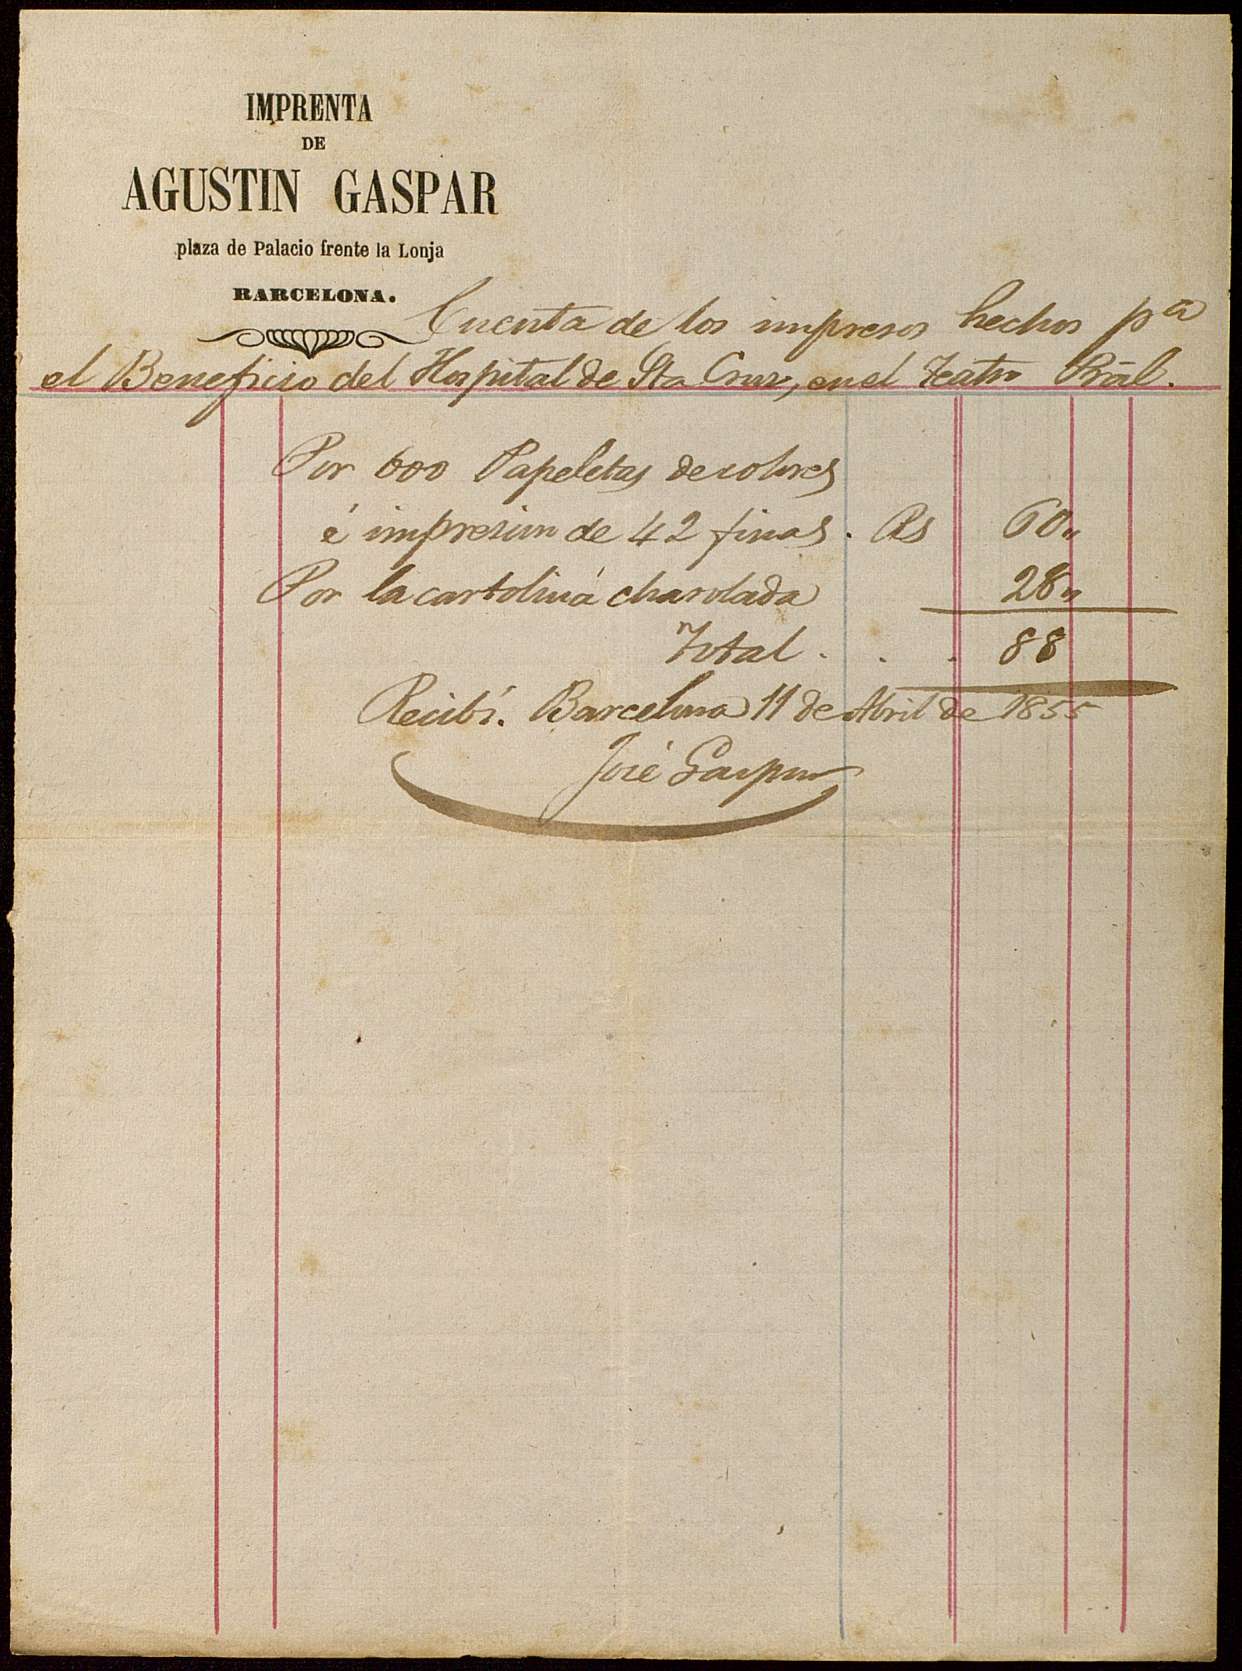 IMPRENTA
DE
AGUSTIN GASPAR
plaza de Palacio frente la Lonja
BARCELONA.
Cuenta de los impresos hechos pª
el Beneficio del Hospital de Sta Cruz, en el Teatro Prãl.
Por 600 Papeletas de colores
é impresion de 42 finas . Rs 60 "
Por la cartolina charolada 28 "
Total . . . 88
Recibí. Barcelona 11 de Abril de 1855
José Gaspar